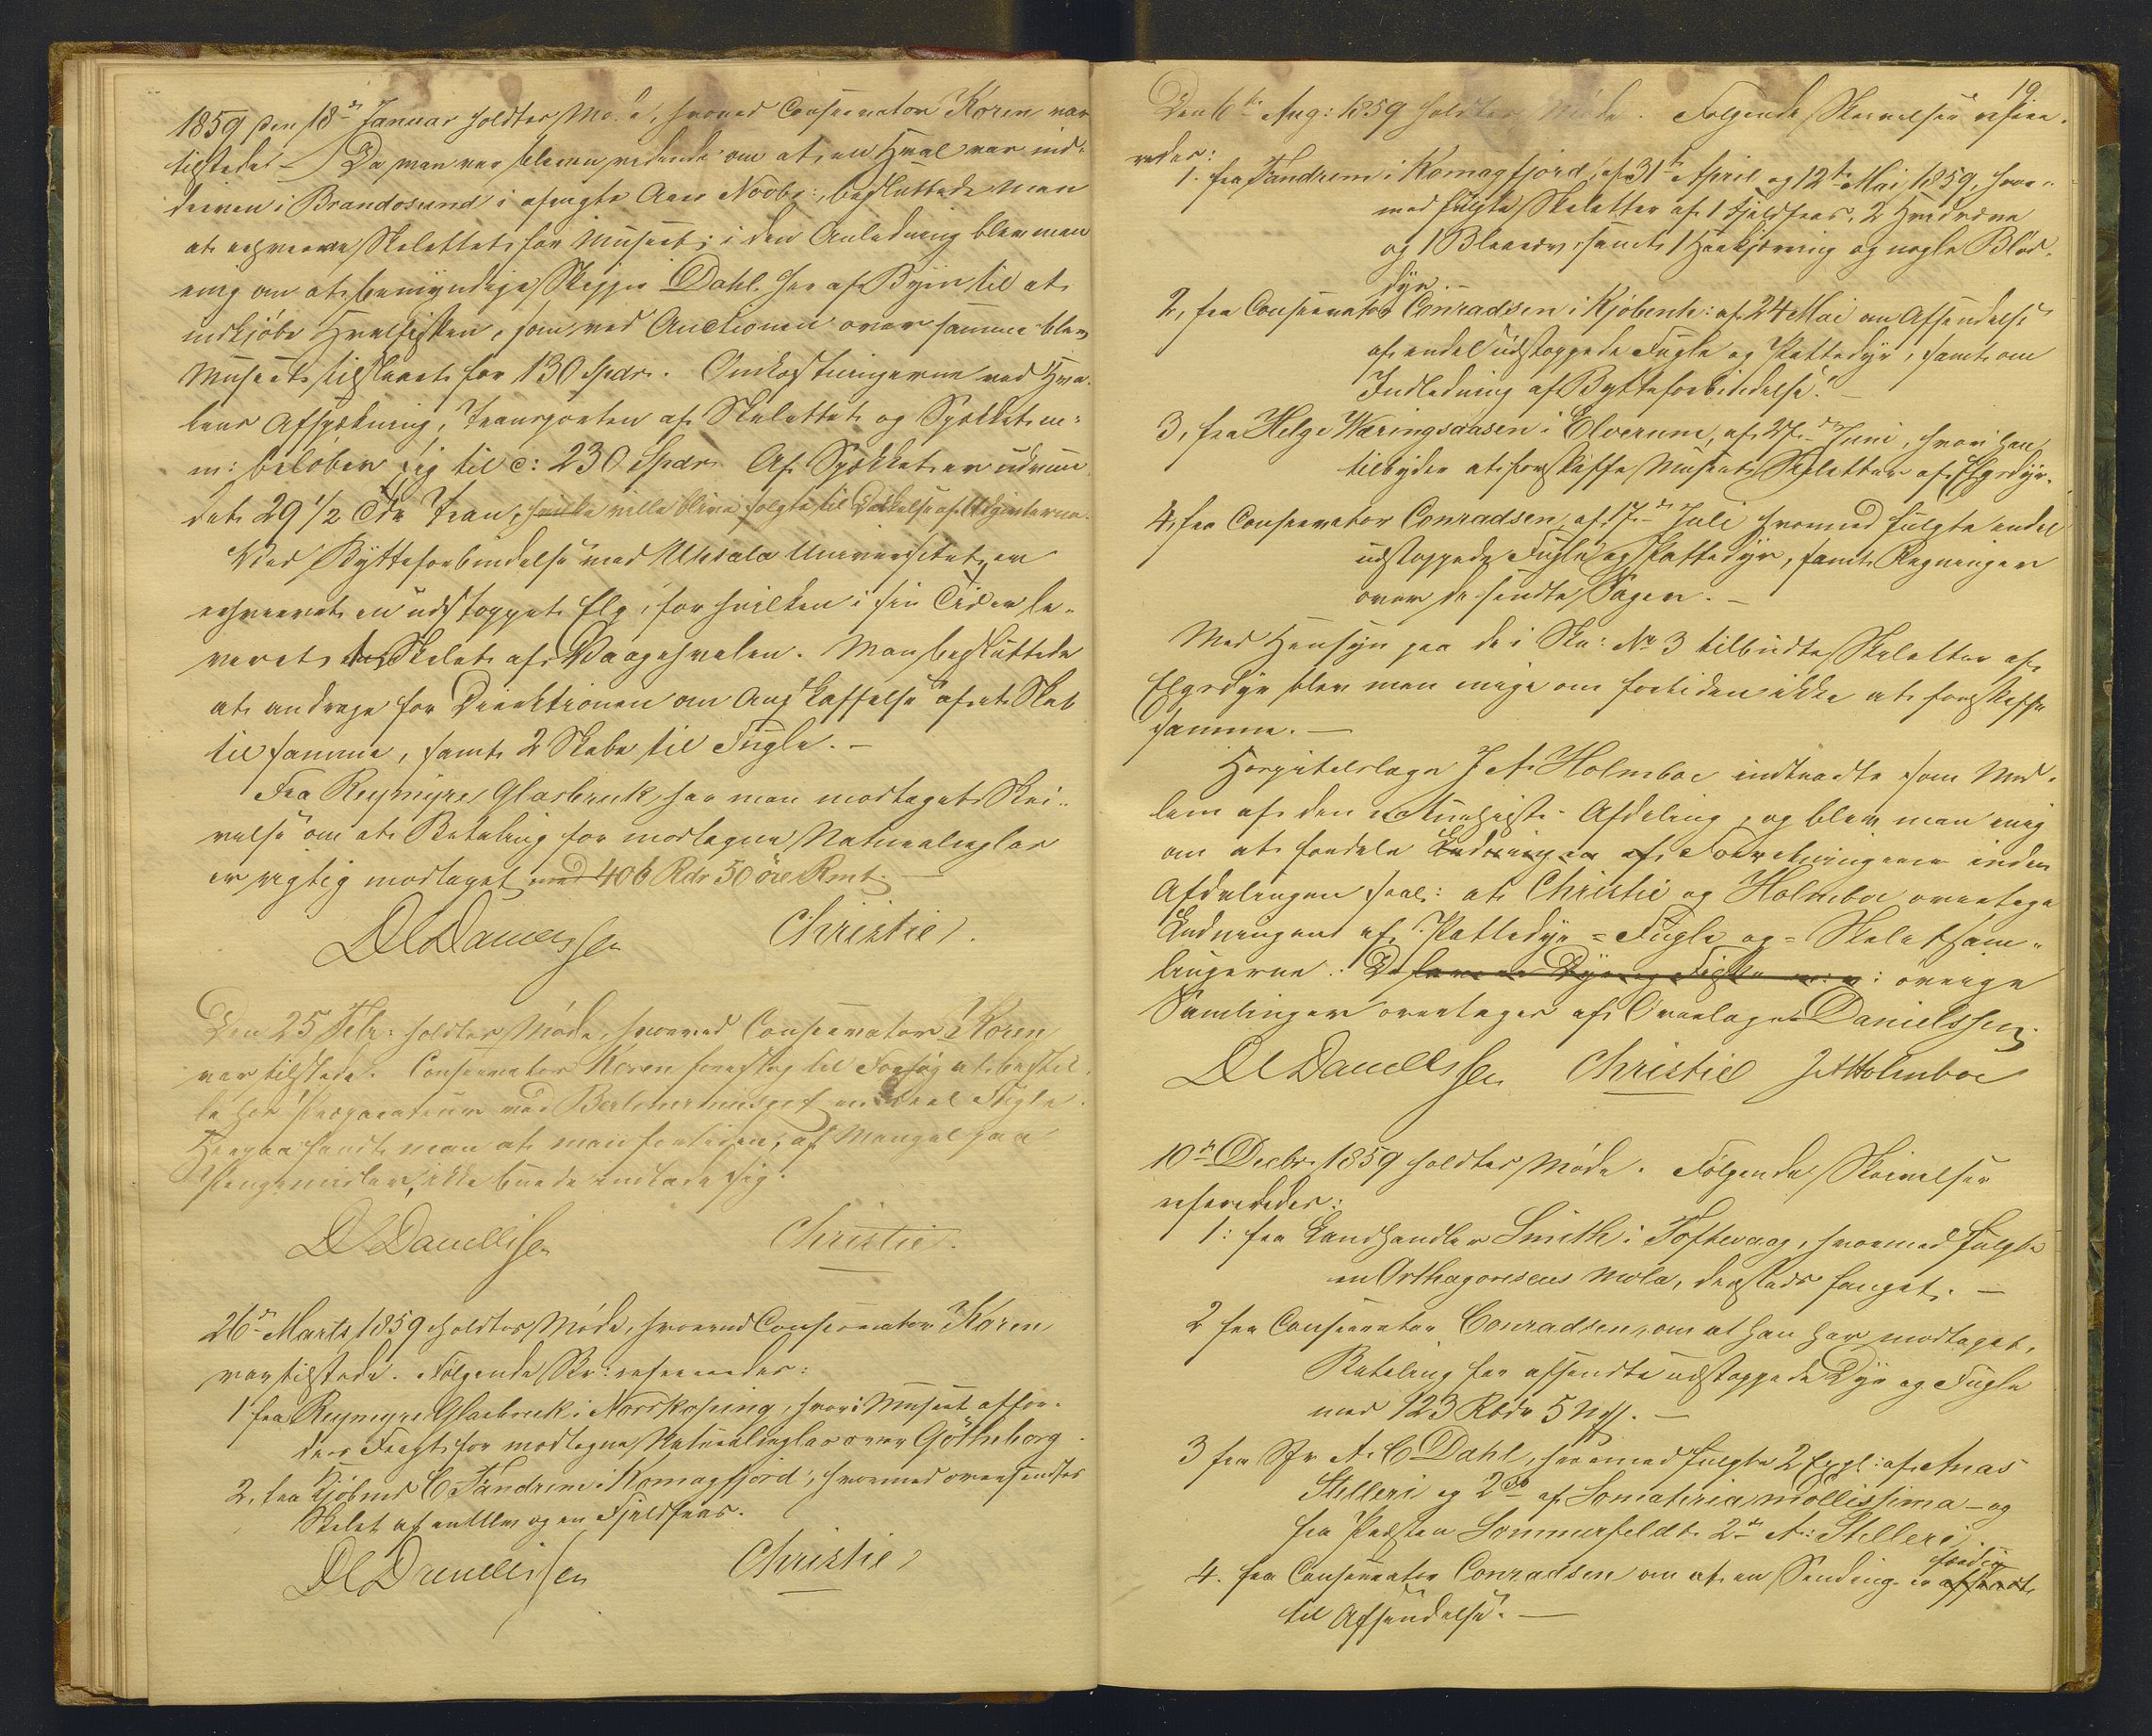 1859 den 18de Januar holdtes Møde, hvorved Conservator Koren var
tilstede. – Da man var bleven vidende om at en Hval var ind-
dreven i Brandosund i afvigte Aars Novbr:, besluttede man
at erhverve Skelettet for Museet; i den Anledning blev man
enig om at bemyndige Skipper Dahl her af Byen til at
indkjöbe Hvalfisken, som ved Auctionen over samme blev
Museets tilslaaet for 130 Spdr. Omkostningerne ved Hva-
lens Afspækning, Transporten af Skelettet og Spækket m:
m: beløber sig til c: 230 Spdr. Af Spækket er udvun
det 29 1/2 Tdr Tran, hvilke ville blive solgte til Dækkelse af Udgifterne.
Ved Bytteforbindelse med Upsala Universitet er
erhvervet en udstoppet Elg, for hvilken i sin Tid er le-
veret Skelet af Vaagehvalen. Man besluttede
at andrage for Direktionen om Anskaffelse af et Skab
til samme, samt 2 Skabe til Fugle. –
Fra Reymyre Glasbruk har man modtaget Skri-
velse om at Betaling for modtagne Naturalieglas
er rigtig modtaget med 406 Rdr 50 öre Rmt. –
D C Danielssen Christie.
Den 25 Febr: holdtes Møde, hvorved Conservator Koren
var tilstede. Conservator Koren foreslog til Forsøg at bestil-
le hos Præparateuren ved Berlinermuseet en Deel Fugle.
Herpaa fandt man at man fortiden, af Mangel paa
Pengemidler, ikke burde indlade sig.
D C Danielssen Christie.
26de Marts 1859 holdtes Møde, hvorved Conservator Koren
var tilstede. Følgende Skr: refereredes:
1 fra Reymyre Glasbruk i Norrkoping, hvori Museet affor-
dres Fragt for modtagne Naturalieglas over Götheborg.
2, fra Kjöbmd C Tandrem i Komagfjord, hvormed oversendtes
Skelet af en Ulv og en Fjeldfras.
D C Danielssen Christie
19
Den 6te Aug: 1859 holdtes Møde. Følgende Skrivelser refere-
redes:
1. fra Tandrem i Komagfjord, af 31te April og 12te Mai 1859, hvor-
med fulgte Skeletter af 1 Fjeldfras, 2 Hvidræve
og 1 Blaaræv, samt 1 Haakjærring og nogle Blød-
dyr. –
2, fra Conservator Conradsen i Kjöbenh: af 24 Mai om Afsendelse
af endel udstoppede Fugle og Pattedyr, samt om
Indledning af Bytteforbindelse. –
3, fra Helge Væringsaasen i Elverum, af 27de Juni, hvori han
tilbyder at forskaffe Museet Skeletter af Elgsdyr.
4, fra Conservator Conradsen af 17de Juli hvormed fulgte endel
udstoppede Fugle og Pattedyr, samt Regninger
over de sendte Sager. –
Med Hensyn paa de i Skr: No 3 tilbudte Skeletter af
Elgsdyr blev man enige om fortiden ikke at forskaffe
samme. –
Hospitalslæge J A Holmboe indtraadte som Med-
lem af den naturhist: Afdeling, og blev man enig
om at fordele Ledningen af Forretningerne inden
Afdelingen saal: at Christie og Holmboe overtage
Ledningen af Pattedyr- Fugle og- Skeletsam-
lingerne. De övrige
Samlinger overtages af Overlæge Danielssen.
D C Danielssen Christie J A Holmboe
10de Decbr 1859 holdtes Møde. Følgende Skrivelser
refereredes:
1: fra Landhandler Smith i Toftevaag, hvormed fulgte
en Orthagoriscus mola, dersteds fanget. –
2 fra Conservator Conradsen, om at han har modtaget
Betaling for afsendte udstoppede Dyr og Fugle
med 123 Rbdr 5 Mk. –
3 fra Hr A. C Dahl, hvormed fulgte 2 Expl: af Anas
Stelleri og 2 do af Somateria mollissima – og
fra Præsten Sommerfeldt 2 do A: Stelleri.
4. fra Conservator Conradsen om at en Sending er afsendt færdig
til Afsendelse. –